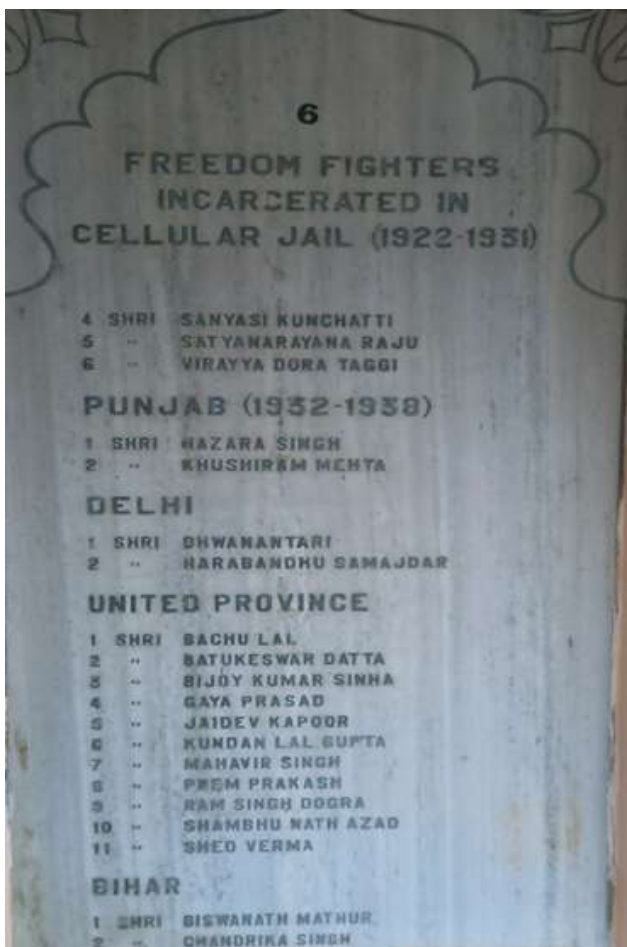 6
FREEDOM FIGHTERS
INCARCERATED IN
CELLULAR JAIL (1922-1931)
4 SHRI SANYASI KUNCHATTI
5 " SATYANARAYANA RAJU
6 " VIRAYYA DORA TAGGI
PUNJAB (1932-1938)
1 SHRI HAZARA SINGH
2 " KHUSHIRAM MEHTA
DELHI
1 SHRI DHWANANTARI
2 " HARABANDHU SAMAJDAR
UNITED PROVINCE
1 SHRI BACHU LAL
2 " BATUKESWAR DATTA
3 " BIJOY KUMAR SINHA
4 " GAYA PRASAD
5 " JAIDEV KAPOOR
6 " KUNDAN LAL GUPTA
7 " MAHAVIR SINGH
8 " PREM PRAKASH
9 " RAM SINGH DOGRA
10 " SHAMBHU NATH AZAD
11 " SHEO VERMA
BIHAR
1 SHRI BISWANATH MATHUR
2 " CHANDRIKA SINGH